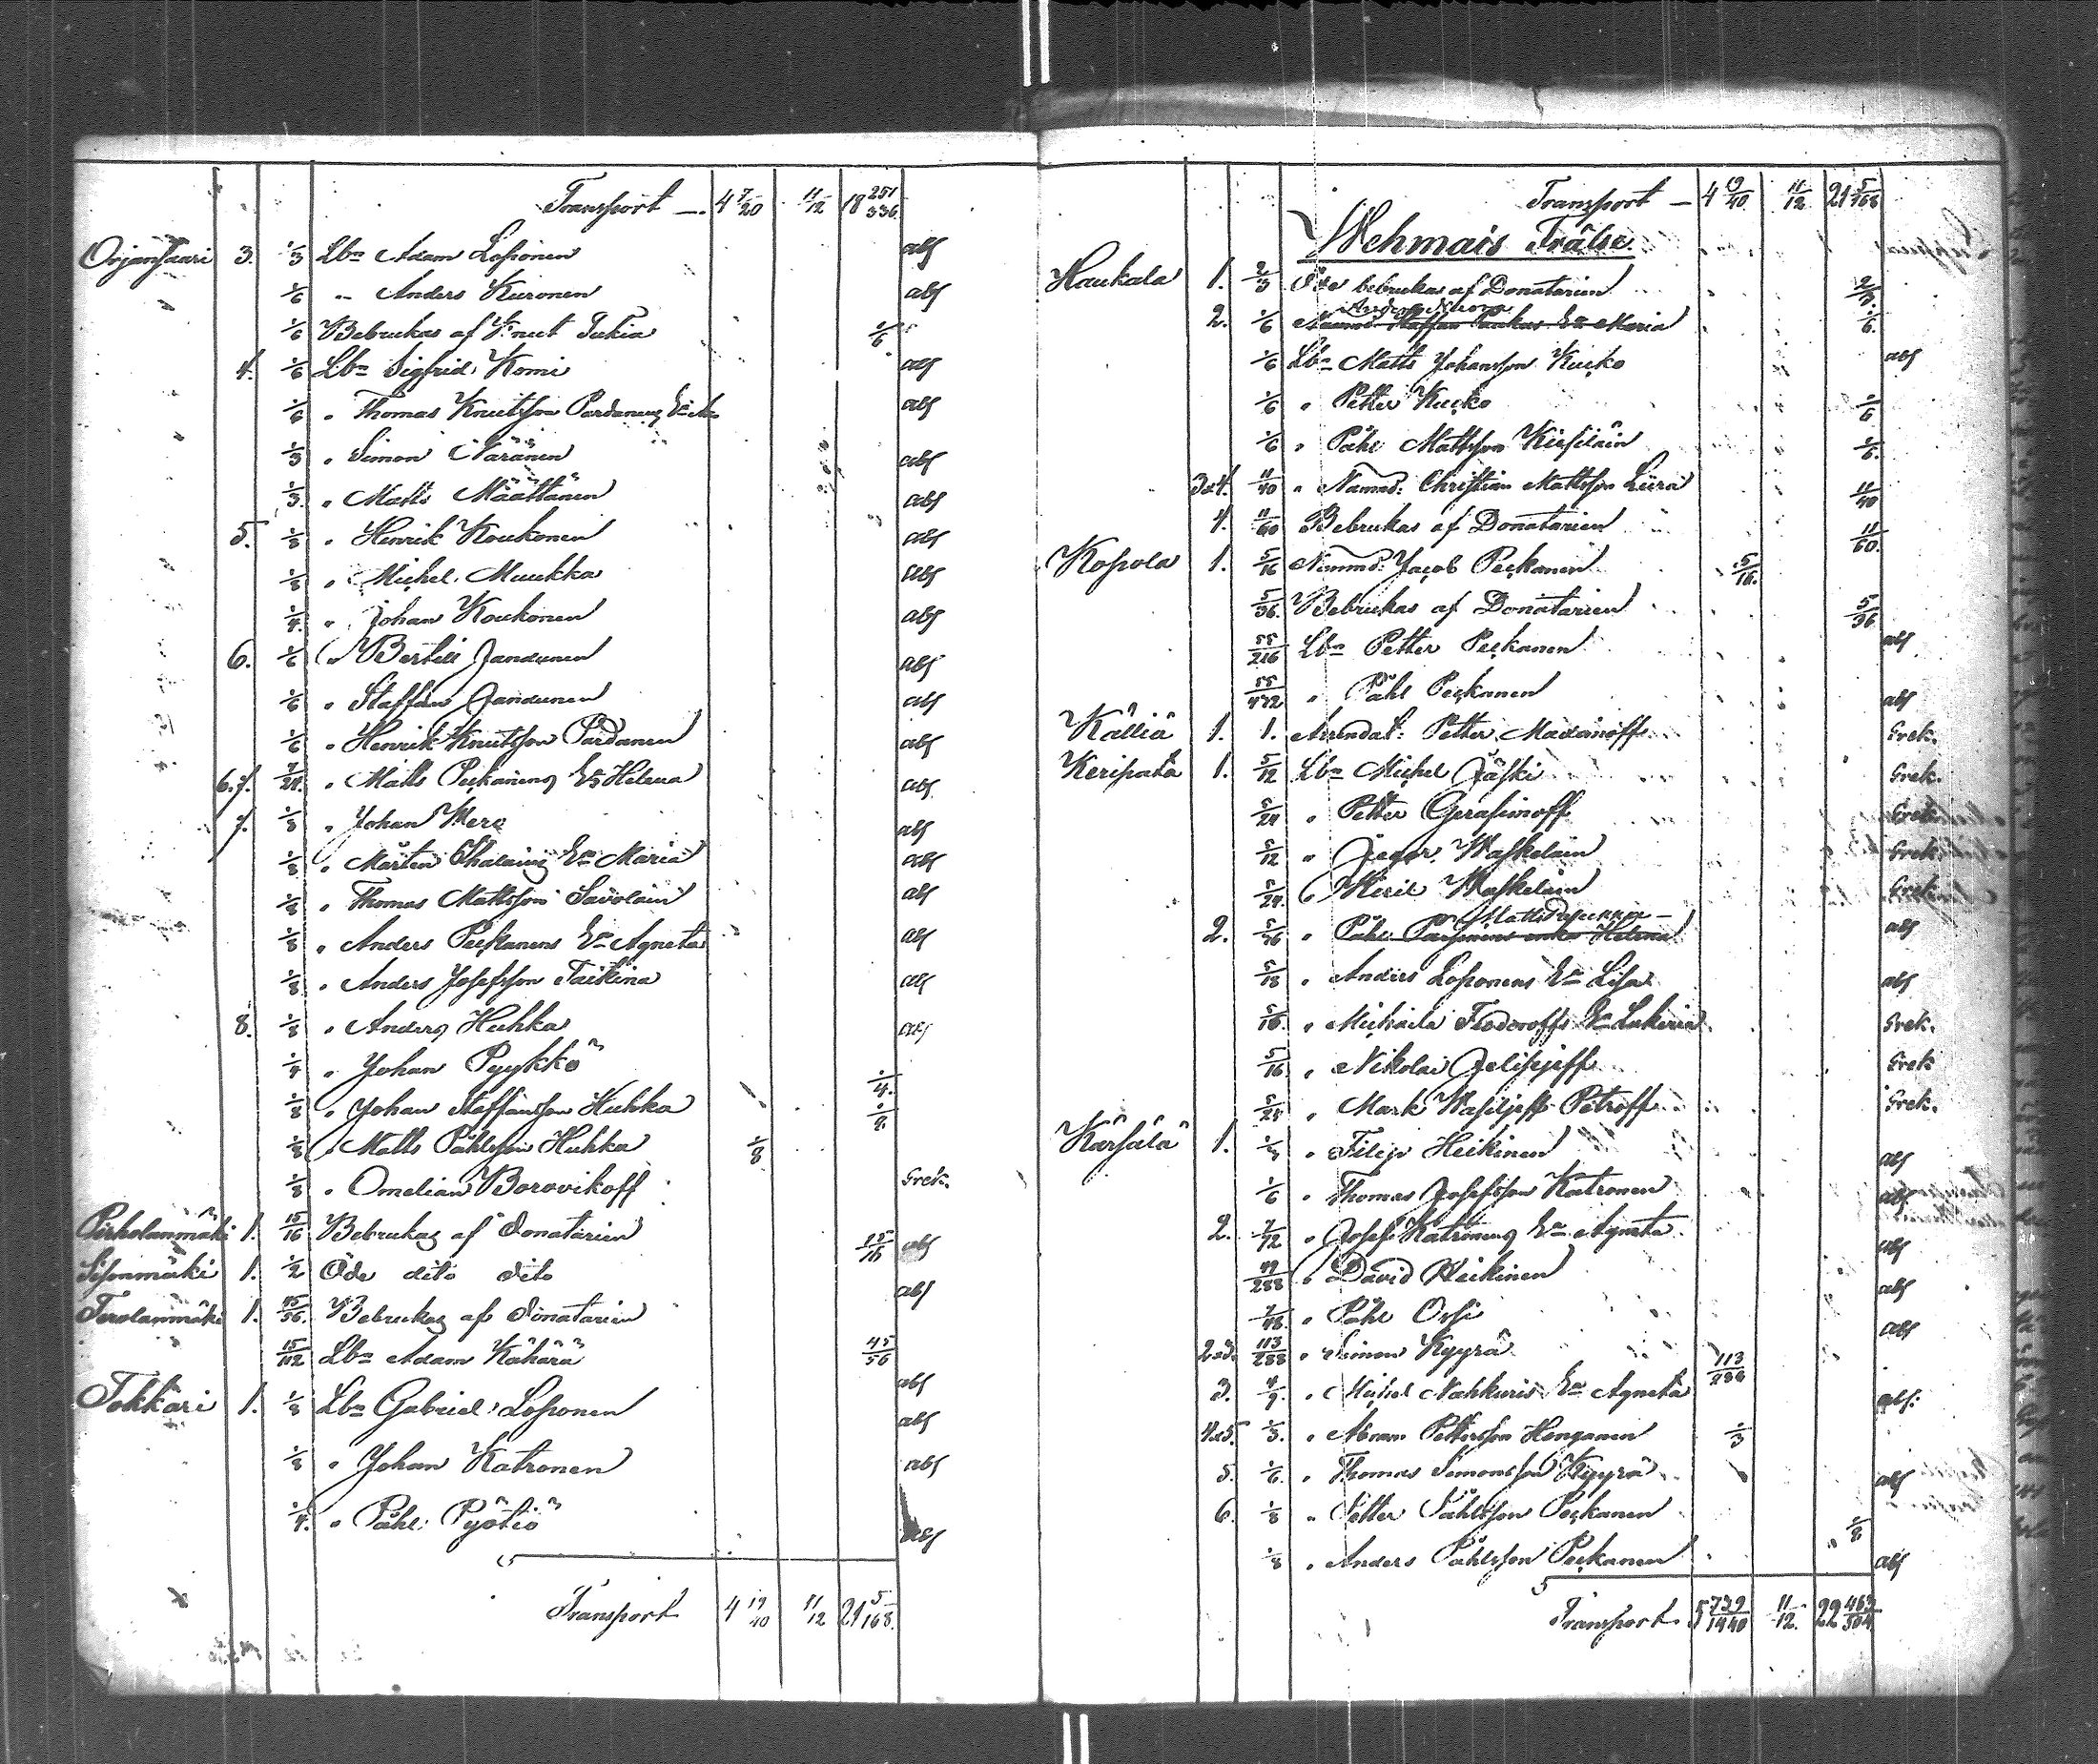 Transport — 4 7/20 11/12 18 251/336
Orjansaari 3. 1/3 Lbr Adam Loponen abs
1/6 " Anders Kuronen abs
1/6 Bebrukas af Knut Tukia 1/6
4. 1/6 Lbr Sigfrid Komi abs
1/6 " Thomas Knutsson Pardanens abs
1/3 " Simon Näränen abs
1/3 " Matts Määttänen abs
5. 1/8 " Henrik Koukonen abs
1/8 " Michel Muukka abs
1/4 " Johan Koukonen abs
6. 1/6 " Bertill Jandunen abs
1/6 " Staffan Jandunen abs
1/6 " Henrik Knutsson Pardanen abs
6.7. 7/24 " Matts Peckanens Ea Helena abs
7. 1/8 " Johan Mero abs
1/8 " Mårten Ea Maria abs
1/8 " Thomas Mattsson Savolain abs
1/8 " Anders Peckanens Ea Agneta abs
1/8 " Anders Josefsson Taikina abs
8. 1/8 " Anders Huhka abs
1/4 " Johan Pyykkö 1/4
1/8 " Johan Staffansson Huhka 1/8
1/8 " Matts Påhlsson Huhka 1/8
1/8 " Omelian Borovikoff Grek.
Pirholanmäki 1. 15/16 Bebrukas af Donatarien 15/16 abs
Siponmäki 1. 1/2 Öde dito dito abs
Terolanmäki 1. 45/56 Bebrukas af Donatarien
15/112 Lbr Adam Kähärä 45/56
abs
Tokkari 1. 1/8 Lbr Gabriel Loponen abs
1/8 " Johan Katronen abs
1/4 " Påhl Pyötiö abs
Transport 4 19/40 11/12 21 5/168
Transport — 4 19/40 11/12 21 5/168
Wehmais Frälse.
Haukala 1. 2/3 Öde bebrukas af Donatarien 2/3
2. 1/6 Staffan Paukus Ea Maria 1/6
1/6 Lbr Matts Johansson Kucko abs
1/6 " Petter Kucko 1/6
1/6 " Påhl Mattsson Kirsiläin 1/6
3&4. 11/40 " Nämnd: Christian Mattsson Liira 11/40
4. 11/60 Bebrukas af Donatarien 11/60
Kopola 1. 5/16 Nämnd: Jacob Peckanen 5/16
5/36 Bebrukas af Donatarien 5/36
55/216 Lbr Petter Peckanen abs
55/432 " Påhl Peckanen abs
Källiä 1. 1. Arendat: Petter Maximoff Grek.
Keripata 1. 5/12 Lbr Michel Jäski Grek.
5/24 " Petter Gerasimoff Grek.
5/12 " Jegor Waskelain Grek.
5/24 " Kiril Waskelain Grek.
2. 5/36 " Påhl Parsinens enka Helena abs
5/18 " Anders Loponens Ea Lisa abs
5/16 " Michaila Feodoroffs Ea Lukeria Grek.
5/16 " Nikolai Jelisejeff Grek
5/24 " Mark Wasiljeff Petroff Grek.
Kärsälä 1. " Filip Heikinen abs
1/6 " Thomas Josefsson Katronen abs
2. 7/12 " Josef Katronens Ea Agneta abs
49/288 " David Heikinen abs
7/48 " Påhl Orsi abs
2&3. 113/288 " Simon Kyyrä 113/288
3. 4/9 " Michel Nahkuris Ea Agneta abs:
4&5. 1/3 " Abram Pettersson Honganen 1/3
5. 1/6 " Thomas Simonsson Kyyrä abs
6. 1/8 " Petter Påhlsson Peckanen 1/8
1/8 " Anders Påhlsson Peckanen abs
Transport 5 739/1440 11/12 22 463/504